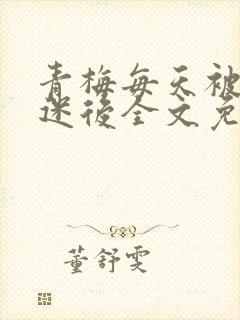 青梅每天被
迷後全文免
董舒雯